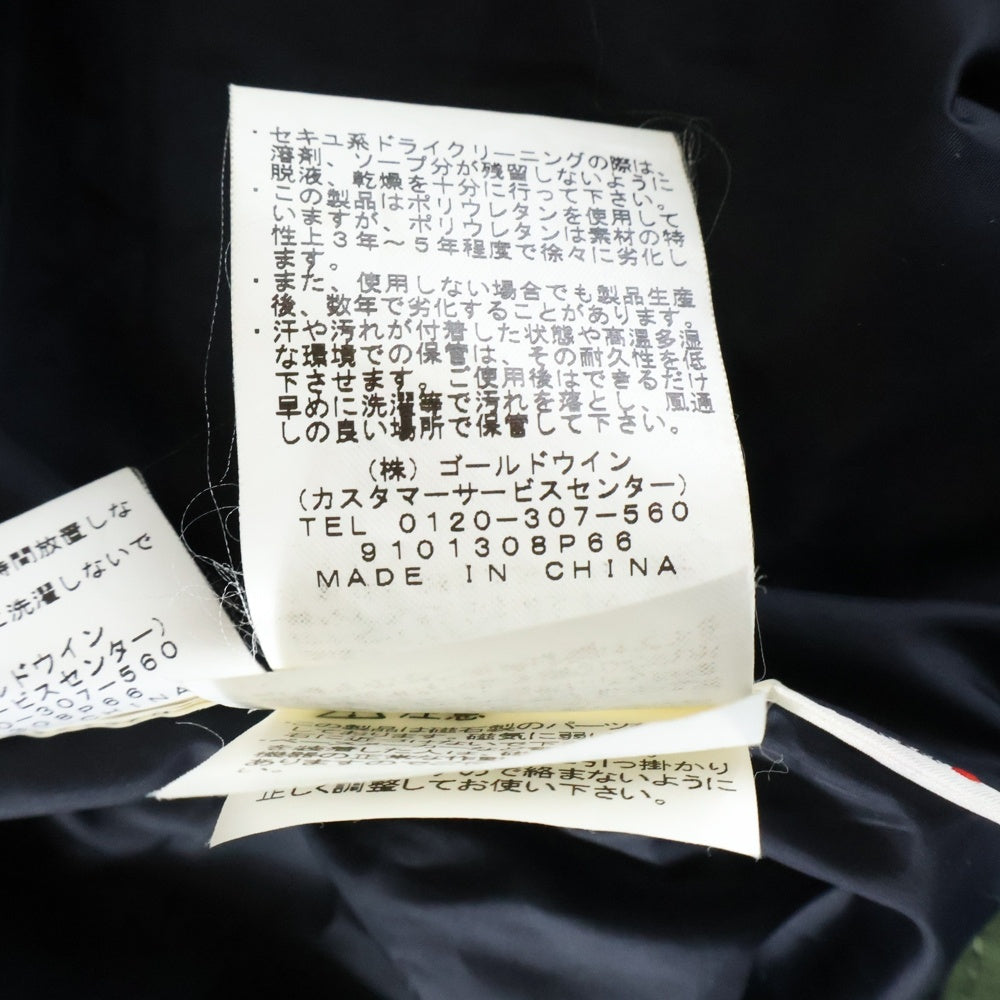 ・セキユ系ドライクリーニングの際は、
溶剤、ソープ分が残留しないように
脱液、乾燥を十分に行って下さい。
・この製品はポリウレタンを使用して
いますが、ポリウレタンは素材の特
性上3年～5年程度で徐々に劣化し
ます。
・また、使用しない場合でも製品生産
後、数年で劣化することがあります。
・汗や汚れが付着した状態や高温多湿
な環境での保管は、その耐久性を低
下させます。ご使用後はできるだけ
早めに洗濯等で汚れを落とし、風通
しの良い場所で保管して下さい。
(株)ゴールドウイン
(カスタマーサービスセンター)
TEL 0120-307-560
9101308P66
MADE IN CHINA
時間放置しな
洗濯しないで
ルドウイン
ービスセンター)
0-307-560
08P66
CHINA
注意
この製品は磁石製のパーツ
磁気に弱
引っ掛かり
ので絡まないように
正しく調整してお使い下さい。